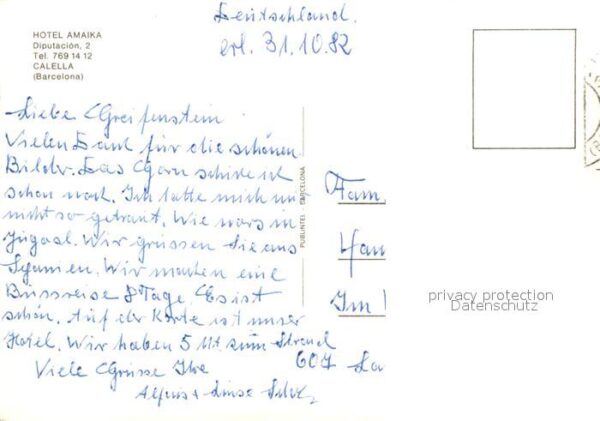 HOTEL AMAIKA
Diputación, 2
Tel. 769 14 12
CALELLA
(Barcelona)
Deutschland.
erl. 31.10.82
Liebe Greifenstein
Vielen Dank für die schönen
Bilder. Das Garn schicke ich
schon noch. Ich hatte mich nur
nicht so getraut. Wie wars in
Jugosl. Wir grüssen Sie aus
Spanien. Wir machten eine
Busreise 8 Tage. Es ist
schön. Auf der Karte ist unser
Hotel. Wir haben 5 Mt zum Strand
Viele Grüsse Ihre
Alfons +
PUBLINTEL BARCELONA
Fam.
Im
607
privacy protection
Datenschutz